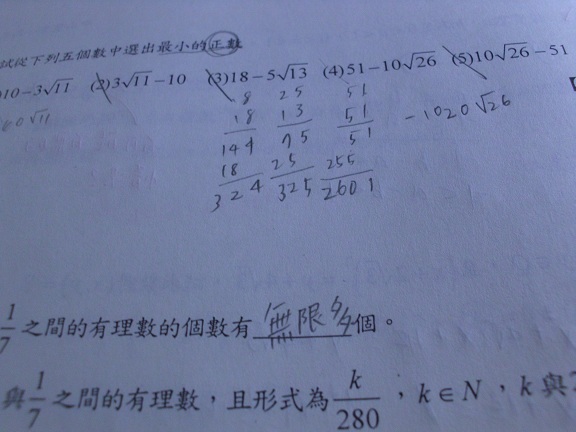 試從下列五個數中選出最小的正數
)10-3√11 (2)3√11-10 (3)18-5√13 (4)51-10√26 (5)10√26-51
60√11
18 25 51
18 13 51
144 75 51 -1020√26
18 25 255
324 325 2601
1/7 之間的有理數的個數有 無限多 個。
與 1/7 之間的有理數,且形式為 k/280 , k∈N , k 與